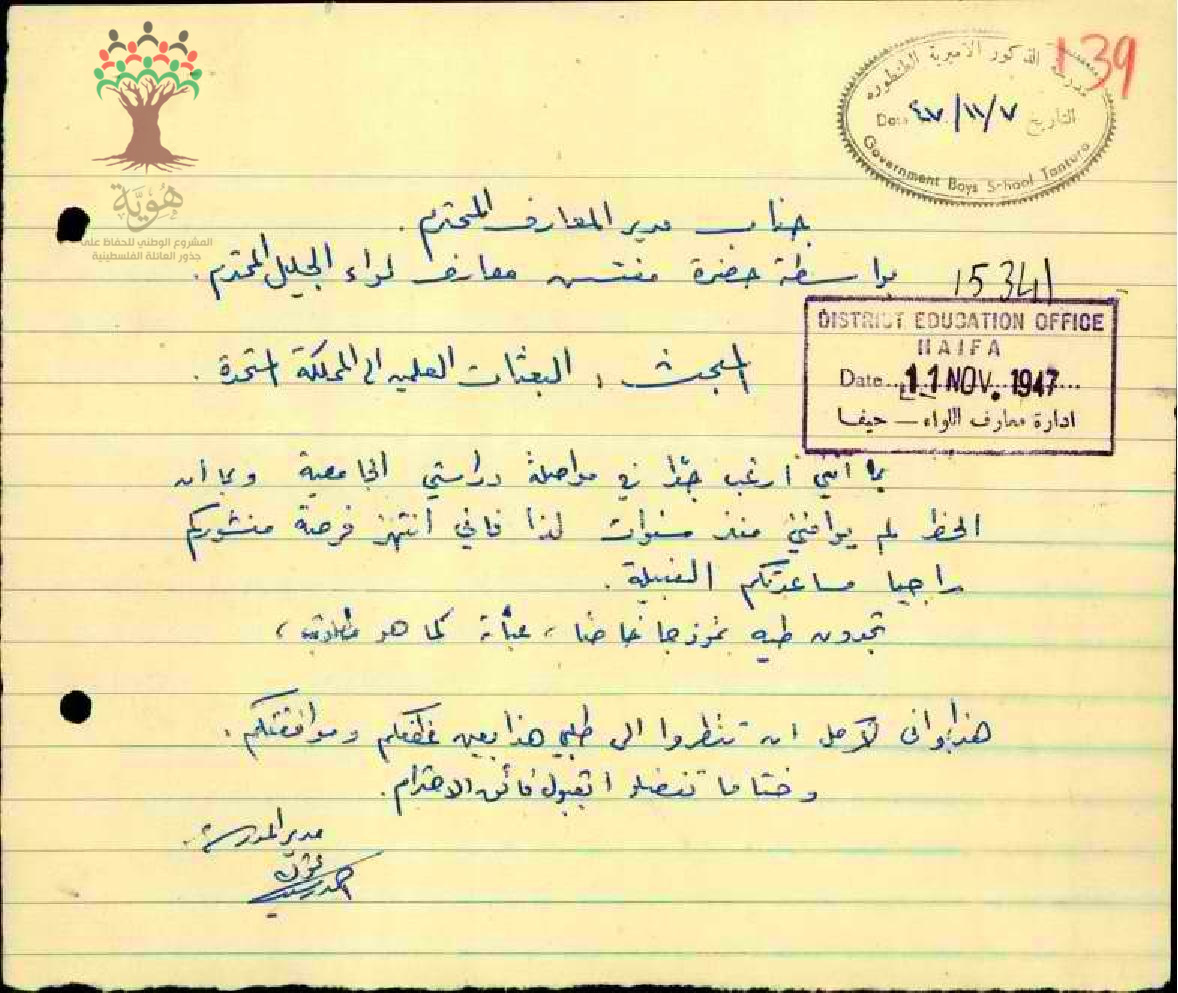 139
مدرسة الذكور الاميرية الطنطوره
Date ٤٧/١١/٧ التاريخ
Government Boys School Tantura
هُوِيَّة
المشروع الوطني للحفاظ على
جذور العائلة الفلسطينية
جناب مدير المعارف المحترم.
بواسطة حضرة مفتش معارف لواء الجليل المحترم.
15341
DISTRICT EDUCATION OFFICE
HAIFA
Date 11 NOV. 1947
ادارة معارف اللواء — حيفا
المبحث : البعثات العلميه الى المملكة المتحدة .
بما انني ارغب جدًا في مواصلة دراستي الجامعية وبما ان
الحظ لم يوافني منذ سنوات لذا فاني انتهز فرصة منشوركم
راجيا مساعدتكم النبيلة.
تجدون طيه نموذجا خاصًا ، عبأته كما هو مطلوب ،
هذا واني لآمل ان تنظروا الى طلبي هذا بعين عطفكم وموافقتكم .
وختاما تفضلوا بقبول فائق الاحترام.
مدير المدرسة.